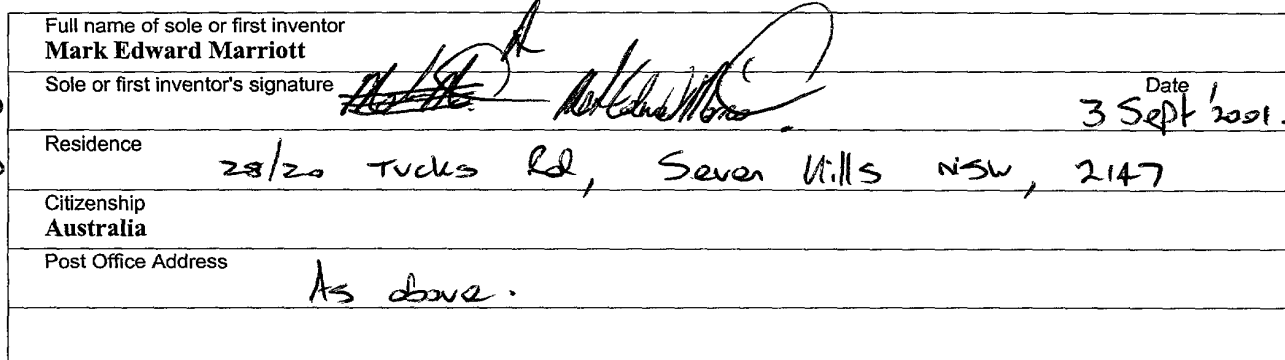 Full name of sole or first inventor
Mark Edward Marriott
Sole or first inventor's signature
Date
3 Sept '2001.
Residence
28/20 Tucks Rd, Seven Hills NSW, 2147
Citizenship
Australia
Post Office Address
As above.